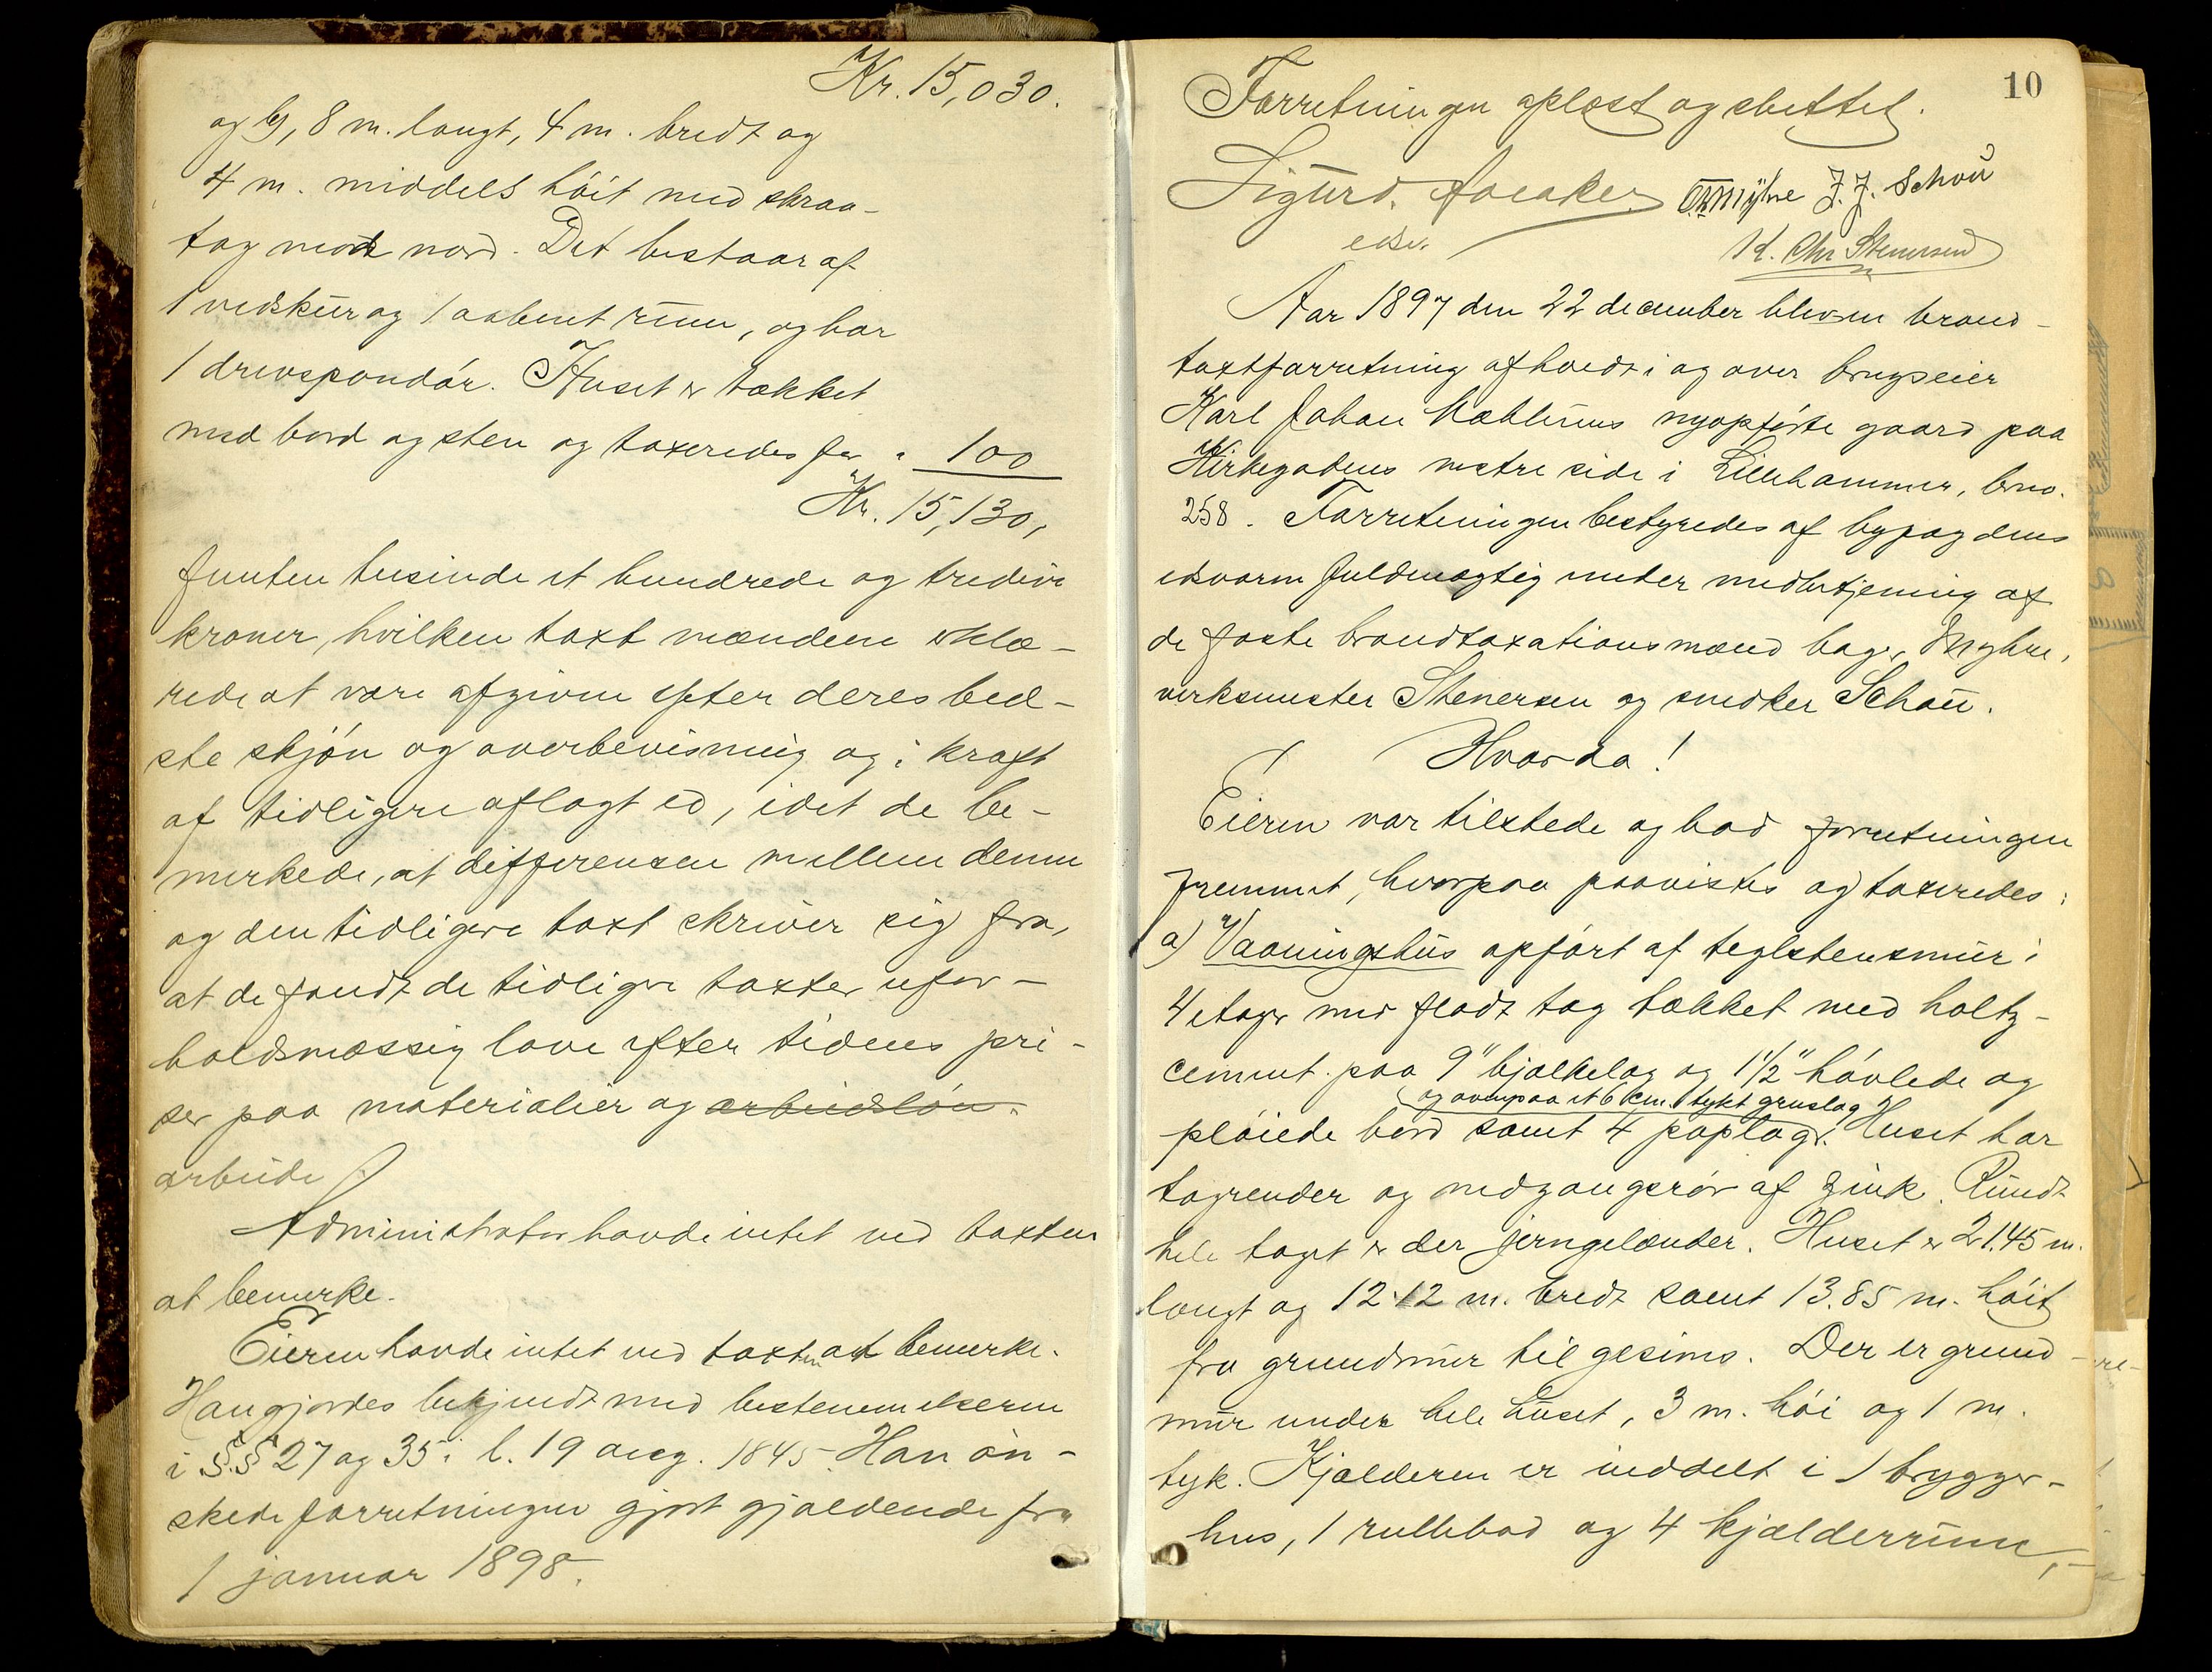 Kr. 15,030.
og b, 8 m. langt, 4 m. bredt og
4 m. middels höit med skraa-
tag mod nord. Det bestaar af
1 vedskur og 1 aabent rum, og har
1 drevspandör. Huset er tækket
med bord og sten og taxeredes for " 100
Kr. 15,130,
femten tusinde et hundrede og tredive
kroner, hvilken taxt mændene erklæ-
rede at være afgiven efter deres bed-
ste skjön og overbevisning og i kraft
af tidligere aflagt ed, idet de be-
merkede, at differensen mellem denne
og den tidligere taxt skriver sig fra,
at de fandt de tidligere taxter ufor-
holdsmæssig lave efter tidens pri-
ser paa materialier og arbeidslön.
arbeide
Administrator havde intet ved taxten
at bemerke.
Eieren havde intet ved taxten at bemerke.
Han gjordes bekjendt med bestemmelserne
i §§ 27 og 35 i l. 19 aug. 1845. Han ön-
skede forretningen gjort gjældende fra
1 januar 1898.
10
Forretningen oplæst og sluttet.
Sigurd Aaeaker OMMyhre J. J. Schou
edsv. K. Chr Stenersen
Aar 1897 den 22 december blev en brand-
taxtforretning afholdt i og over brugseier
Karl Johan Mæhlums nyopförte gaard paa
Kirkegadens vestre side i Lillehammer, brno.
258. Forretningen bestyredes af byfogdens
edsvorne fuldmægtig under medbetjening af
de faste brandtaxationsmænd bager Myhre,
verksmester Stenersen og snedker Schou.
Hvorda!
Eieren var tilstede og bad forretningen
fremmet, hvorpaa paavistes og taxeredes:
a) Vaaningshus opfört af teglstensmur i
4 etager med fladt tag tækket med holtz-
cement paa 9" bjælkelag og 1 1/2" hövlede og
og ovenpaa et 6 cm. tykt gruslag
plöiede bord samt 4 paplag. Huset har
tagrender og nedgangsrör af zink. Rundt
hele taget er der jerngelænder. Huset er 21.45 m.
langt og 12.12 m. bredt samt 13.85 m. höit
fra grundmur til gesims. Der er grund-
mur under hele huset, 3 m. höi og 1 m.
tyk. Kjælderen er inddelt i 1 brygger-
hus, 1 rullebod og 4 kjælderrum,